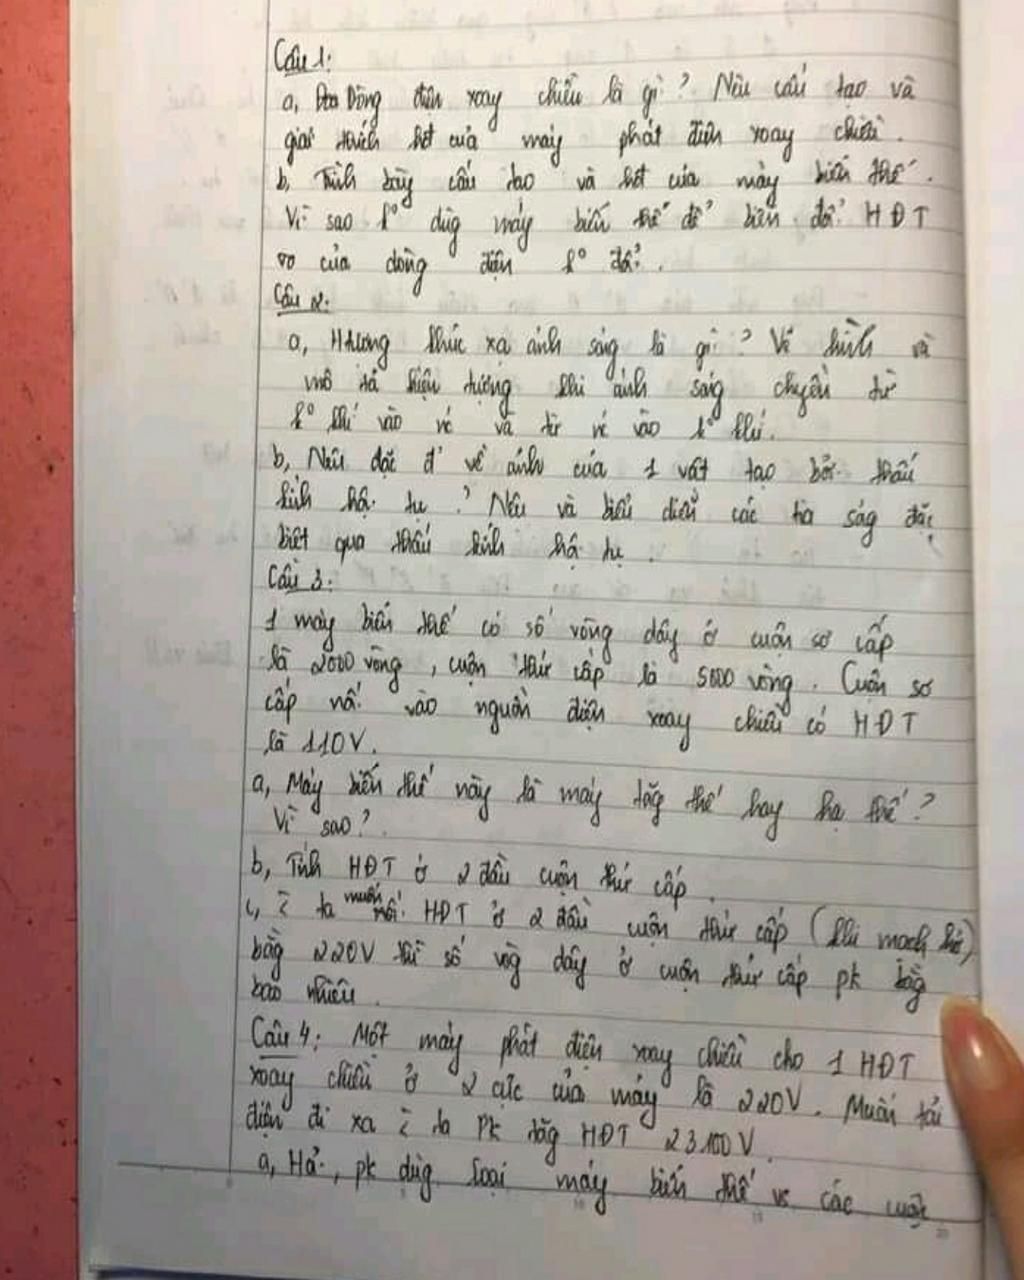 Câu 1:
a, Dòng điện xoay chiều là gì? Nêu cấu tạo và
giải thích hđt của máy phát điện xoay chiều.
b, Trình bày cấu tạo và hđt của máy biến thế.
Vì sao k° dùg máy biến thế để biến đổi HĐT
vs của dòng điện k° đổi.
Câu 2:
a, HTương khúc xạ ánh sáng là gì? Vẽ hình và
mô tả hiện tượng khi ánh sáng chuyền từ
k° khí vào nc và từ nc vào k° khí.
b, Nêu đặc đ' về ảnh của 1 vật tạo bởi thấu
kính hội tụ? Nêu và biểu diễn các tia ság đặc
biệt qua thấu kính hội tụ.
Câu 3:
1 máy biến thế có số vòng dây ở cuộn sơ cấp
là 2000 vòng, cuộn thứ cấp là 5000 vòng. Cuộn sơ
cấp nối vào nguồn điện xoay chiều có HĐT
là 110V.
a, Máy biến thế này là máy tăg thế hay hạ thế?
Vì sao?
b, Tính HĐT ở 2 đầu cuộn thứ cấp.
c, ta muốn HĐT ở 2 đầu cuộn thứ cấp (khi mạch hở)
bằg 220V thì số vòg dây ở cuộn thứ cấp pk bằg
bao nhiêu.
Câu 4: Một máy phát điện xoay chiều cho 1 HĐT
xoay chiều ở 2 cực của máy là 220V. Muốn tải
điện đi xa ta pk tăg HĐT 23100V.
a, Hỏi, pk dùg loại máy biến thế vs các cuộn